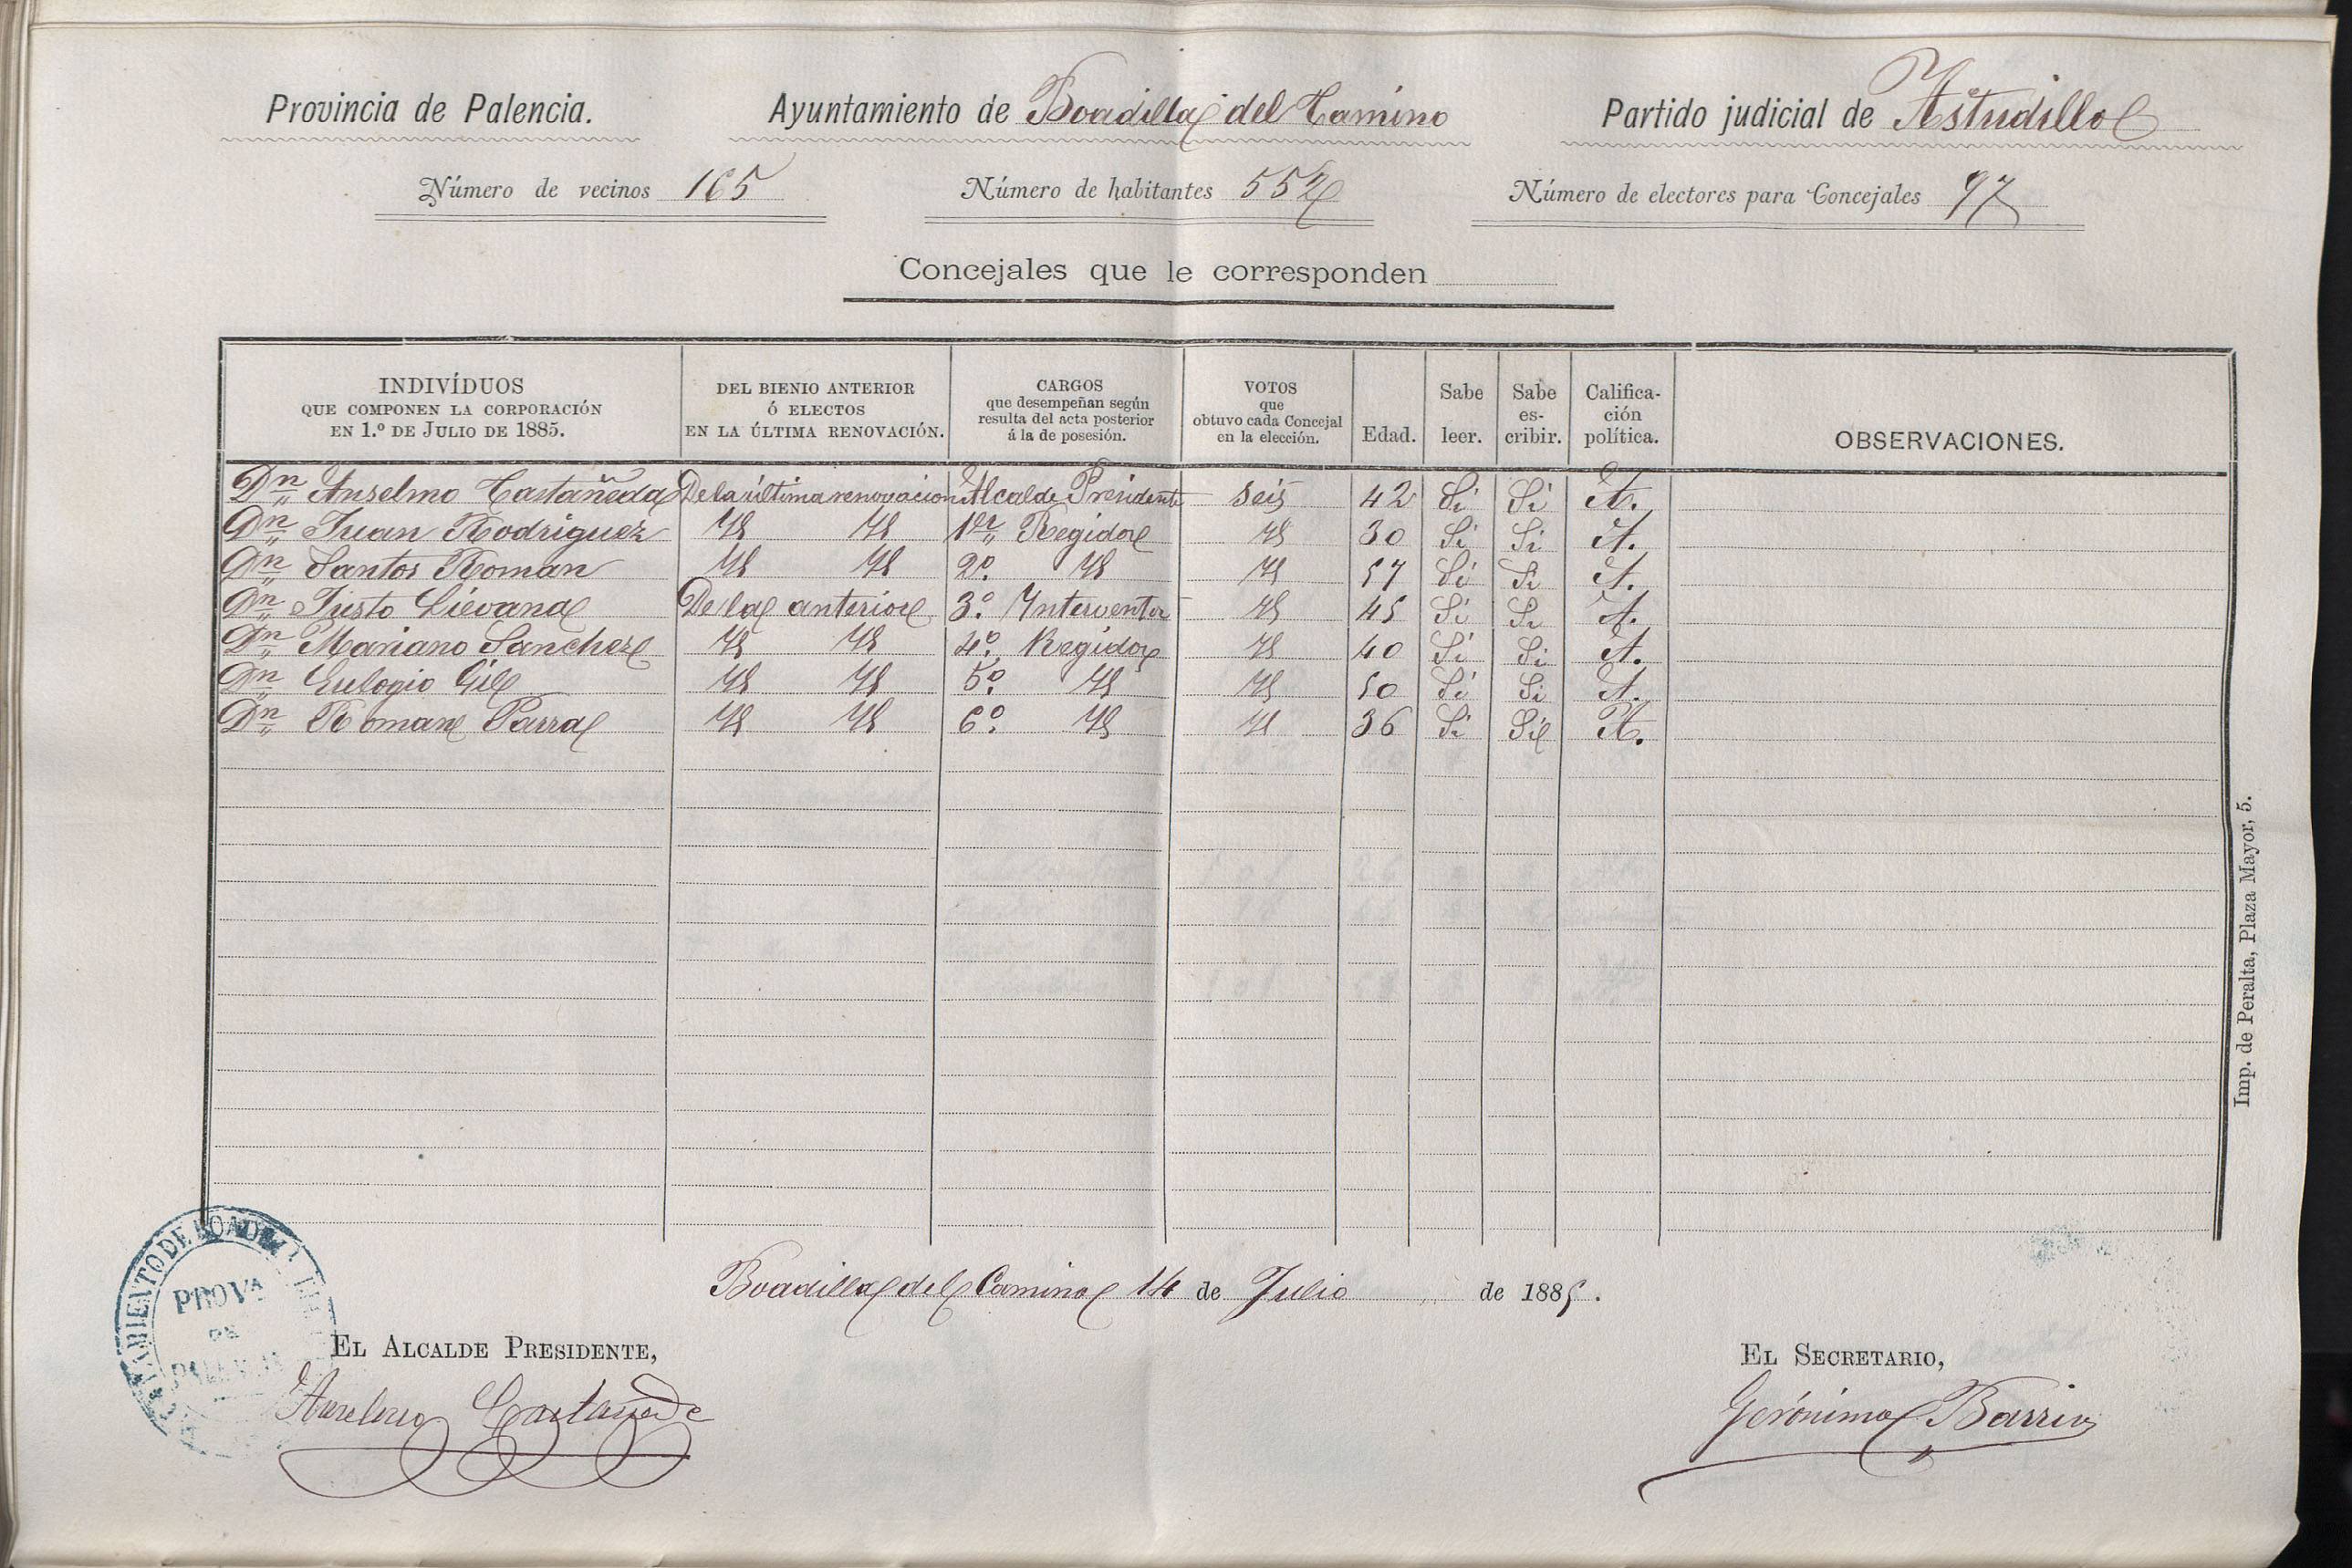 Provincia de Palencia. Ayuntamiento de Boadilla del Camino Partido judicial de Astudillo
Número de vecinos 165 Número de habitantes 552 Número de electores para Concejales 97
Concejales que le corresponden
INDIVÍDUOS QUE COMPONEN LA CORPORACIÓN EN 1.º DE JULIO DE 1885. DEL BIENIO ANTERIOR Ó ELECTOS EN LA ÚLTIMA RENOVACIÓN. CARGOS que desempeñan según resulta del acta posterior á la de posesión. VOTOS que obtuvo cada Concejal en la elección. Edad. Sabe leer. Sabe es-cribir. Califica-ción política. OBSERVACIONES.
Dn Anselmo Castañeda De la última renovacion Alcalde Presidente seis 42 Si Si A.
Dn Juan Rodriguez Id Id 1er Regidor Id 30 Si Si A.
Dn Santos Roman Id Id 2º Id Id 57 Si Si A.
Dn Justo Lievana De la anterior 3º Interventor Id 45 Si Si A.
Dn Mariano Sanchez Id Id 4º Regidor Id 40 Si Si A.
Dn Eulogio Gil Id Id 5º Id Id 50 Si Si A.
Dn Roman Parra Id Id 6º Id Id 36 Si Si A.
Imp. de Peralta, Plaza Mayor, 5.
Boadilla del Camino 14 de Julio de 1885.
AYUNTAMIENTO DE BOADILLA DEL
PROVA
DE
PALENCIA
EL ALCALDE PRESIDENTE, EL SECRETARIO,
Anselmo Castañeda Gerónimo Barrio